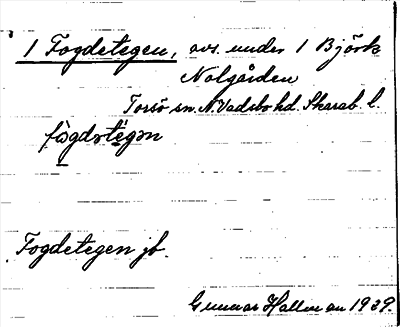 1 Fogdetegen, avs. under 1 Björk
Nolgården
Torsö sn. N. Vadsbo hd. Skarab. l.
fògdətégən
Fogdetegen jb.
Gunnar Hallman 1929.